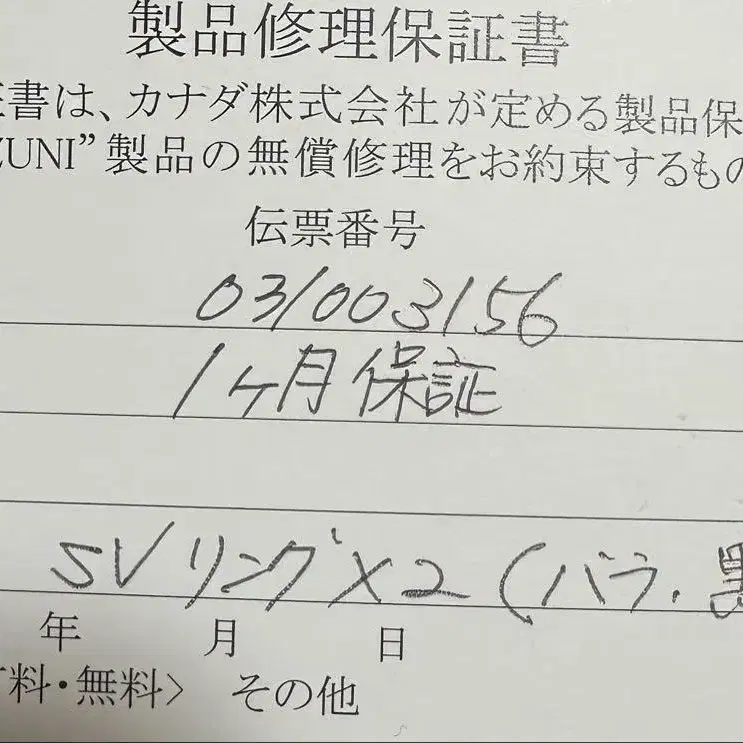 製品修理保証書
書は、カナダ株式会社が定める製品保
ZUNI”製品の無償修理をお約束するもの
伝票番号
03/003156
1ヶ月保証
SVリング×2(バラ.黒
年 月 日
料・無料> その他